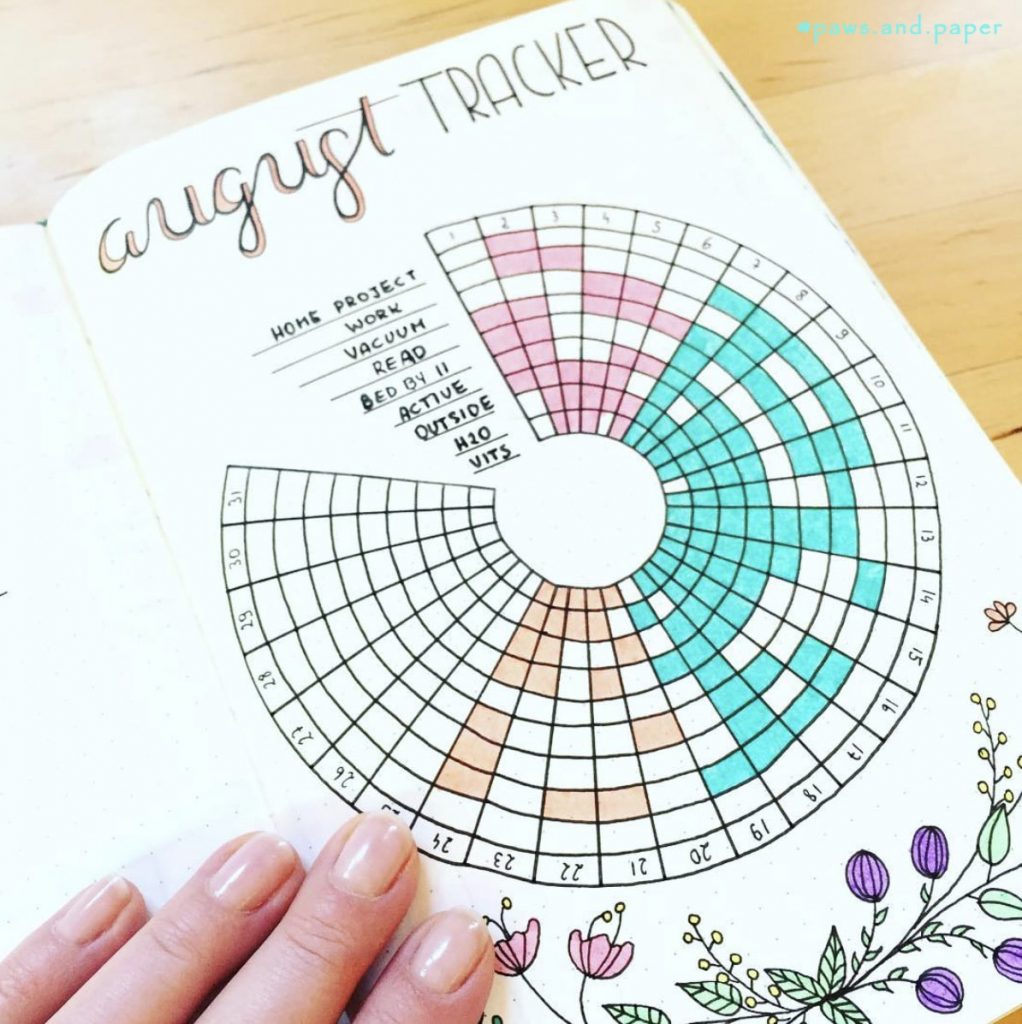 #paws.and.paper
august TRACKER
HOME PROJECT
WORK
VACUUM
READ
BED BY 11
ACTIVE
OUTSIDE
H2O
VITS
1
2
3
4
5
6
7
8
9
10
11
12
13
14
15
16
17
18
19
20
21
22
23
24
26
27
28
29
30
31